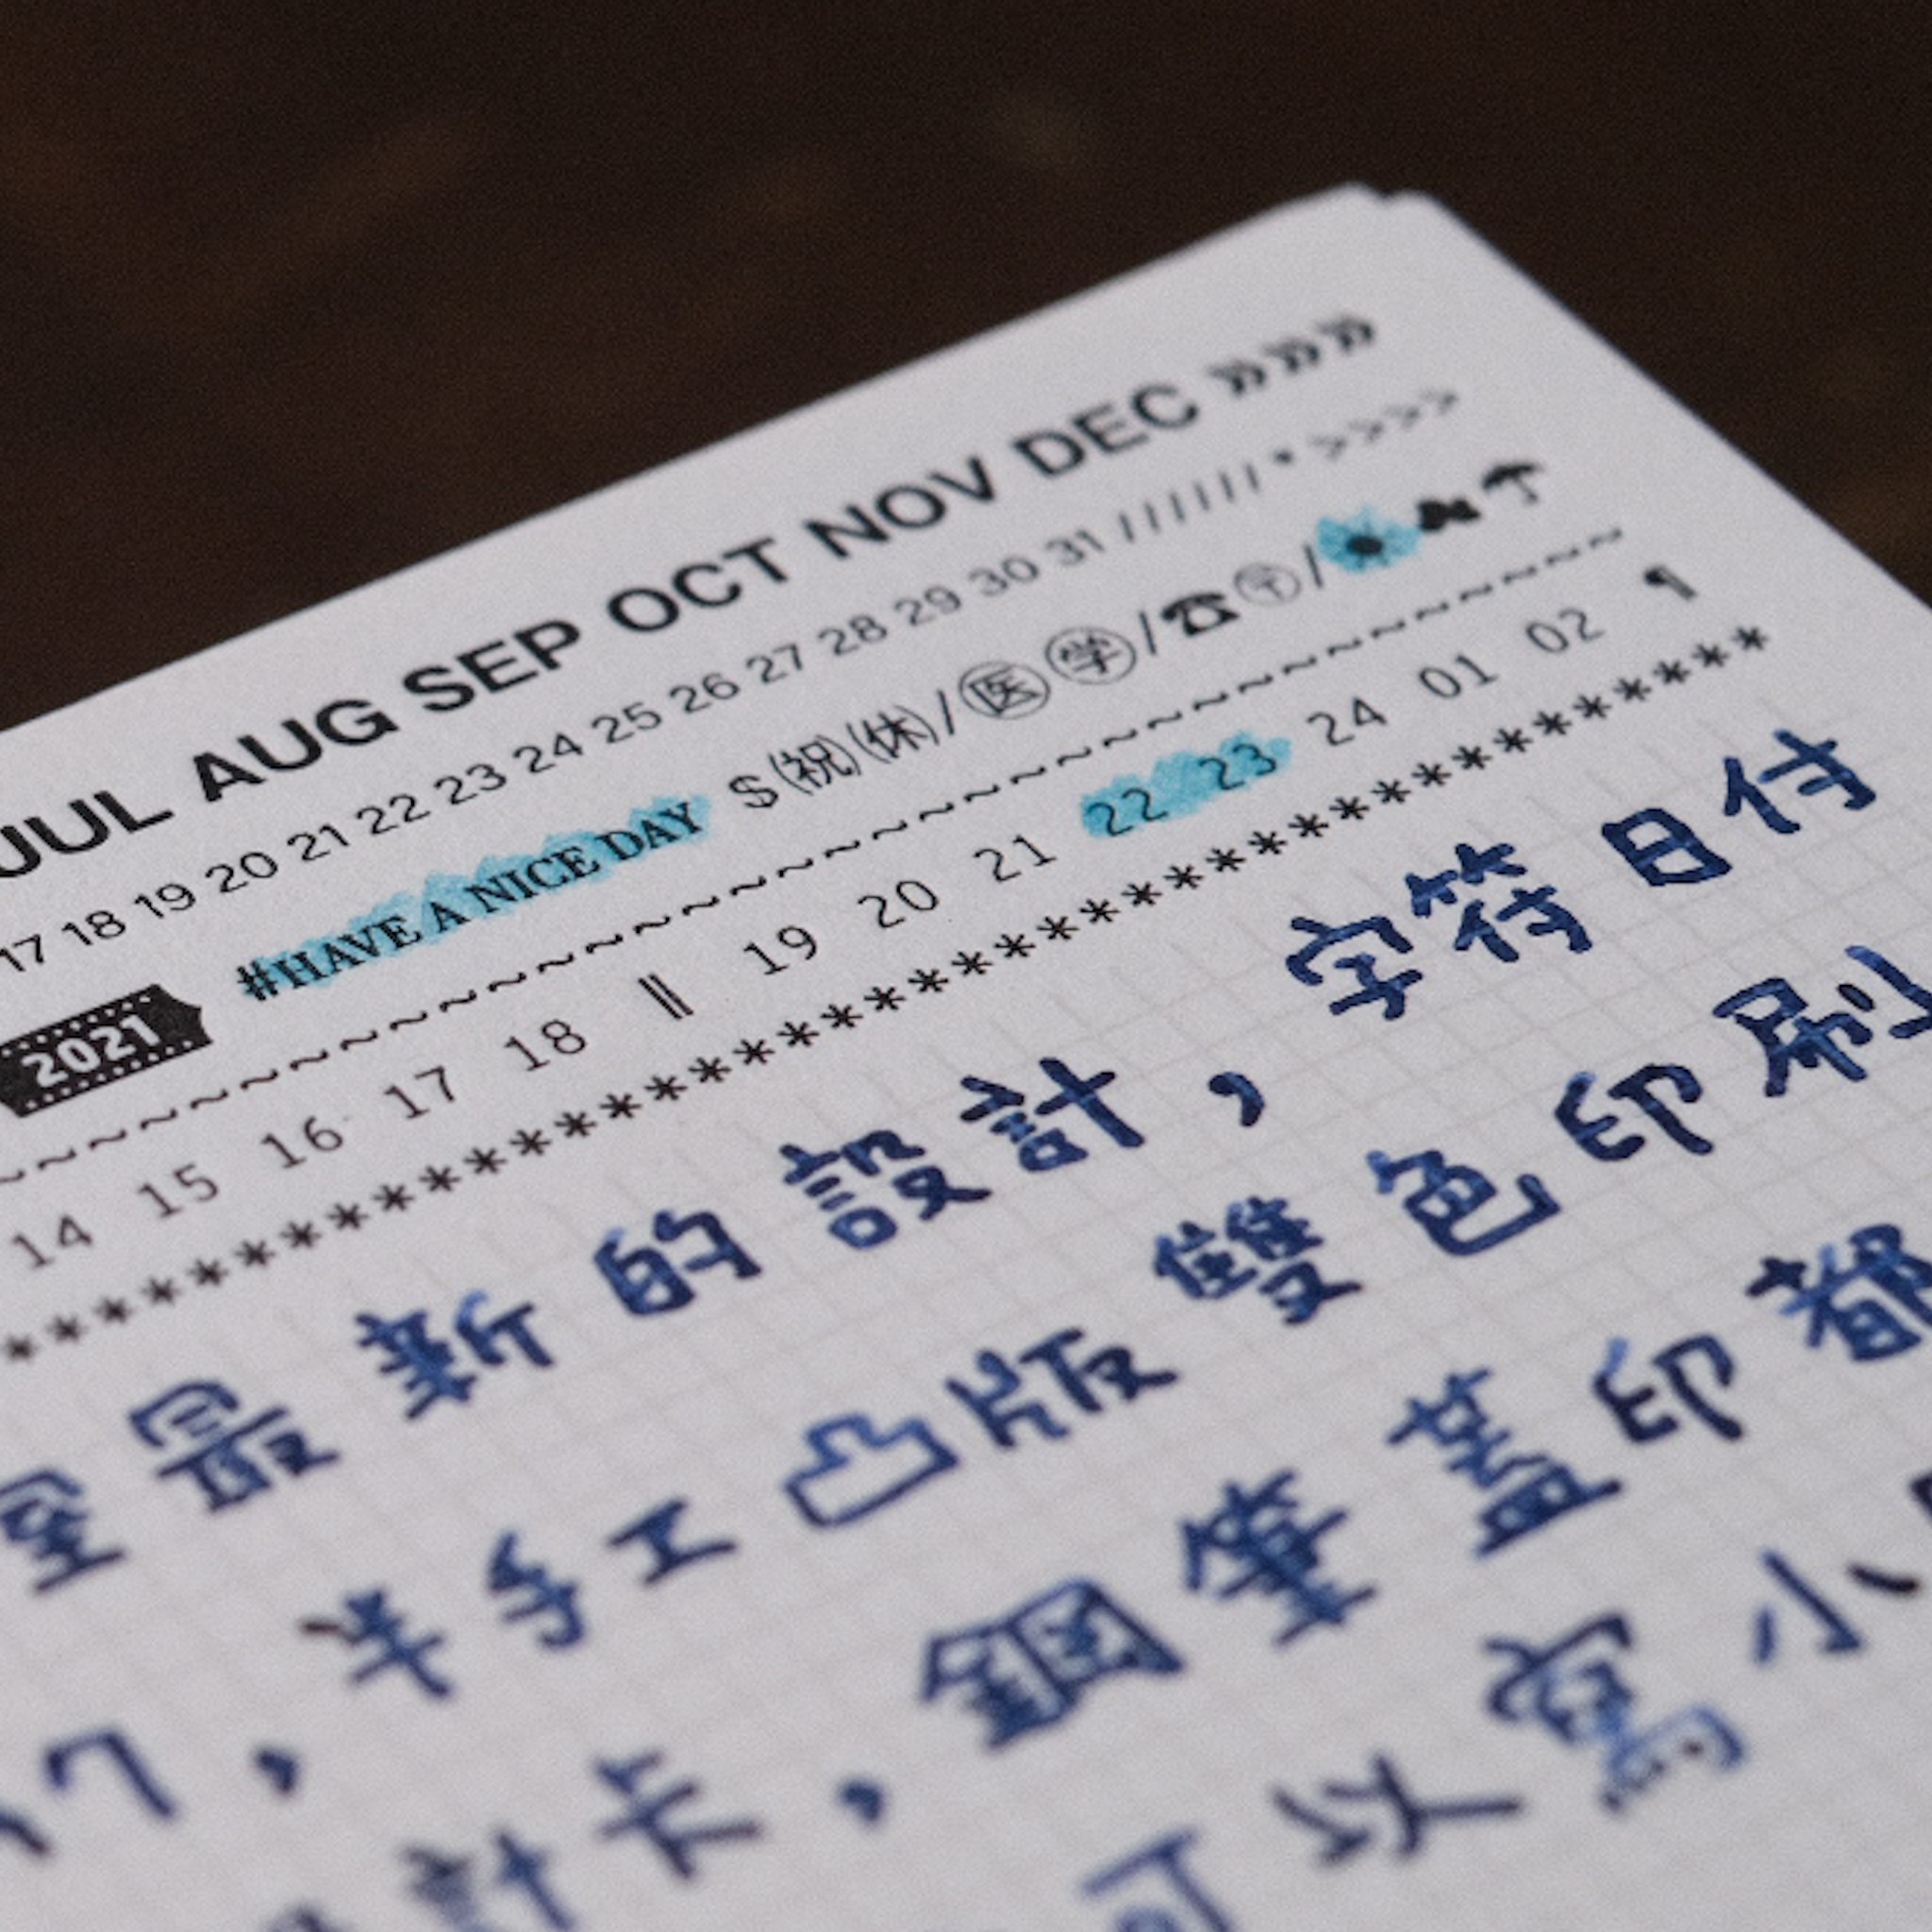 JUL AUG SEP OCT NOV DEC »»»»
17 18 19 20 21 22 23 24 25 26 27 28 29 30 31 //////*>>>>>
2021 #HAVE A NICE DAY $㈷㈡/㊩㊫/☎〶/☀☁☂
14 15 16 17 18 || 19 20 21 22 23 24 01 02 ¶
室最新的設計,字符日付
半手工凸版雙色印刷
計卡,鋼筆蓋印都
可以寫小